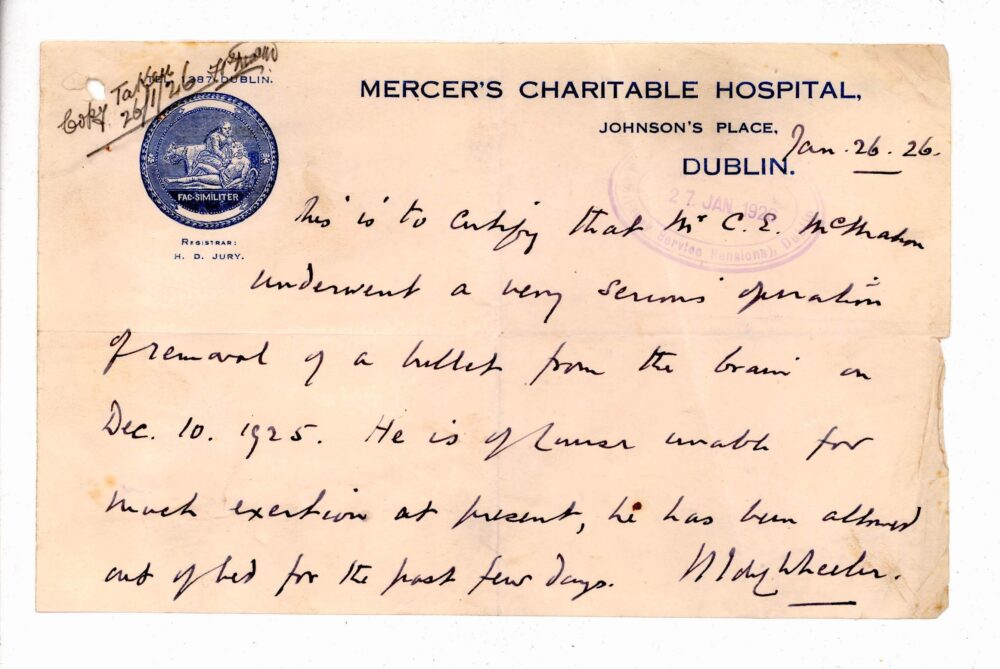 Copy Taken
26/1/26
TEL. 1387 DUBLIN.
MERCER'S CHARITABLE HOSPITAL,
JOHNSON'S PLACE,
DUBLIN.
Jan. 26. 26.
27 JAN 192
Service Pensions), Du
FAC·SIMILITER
REGISTRAR:
H. D. JURY.
This is to certify that Mr C. E. McMahon
underwent a very serious operation
of removal of a bullet from the brain on
Dec. 10. 1925. He is of course unable for
much exertion at present, he has been allowed
out of bed for the past few days. Wheeler.